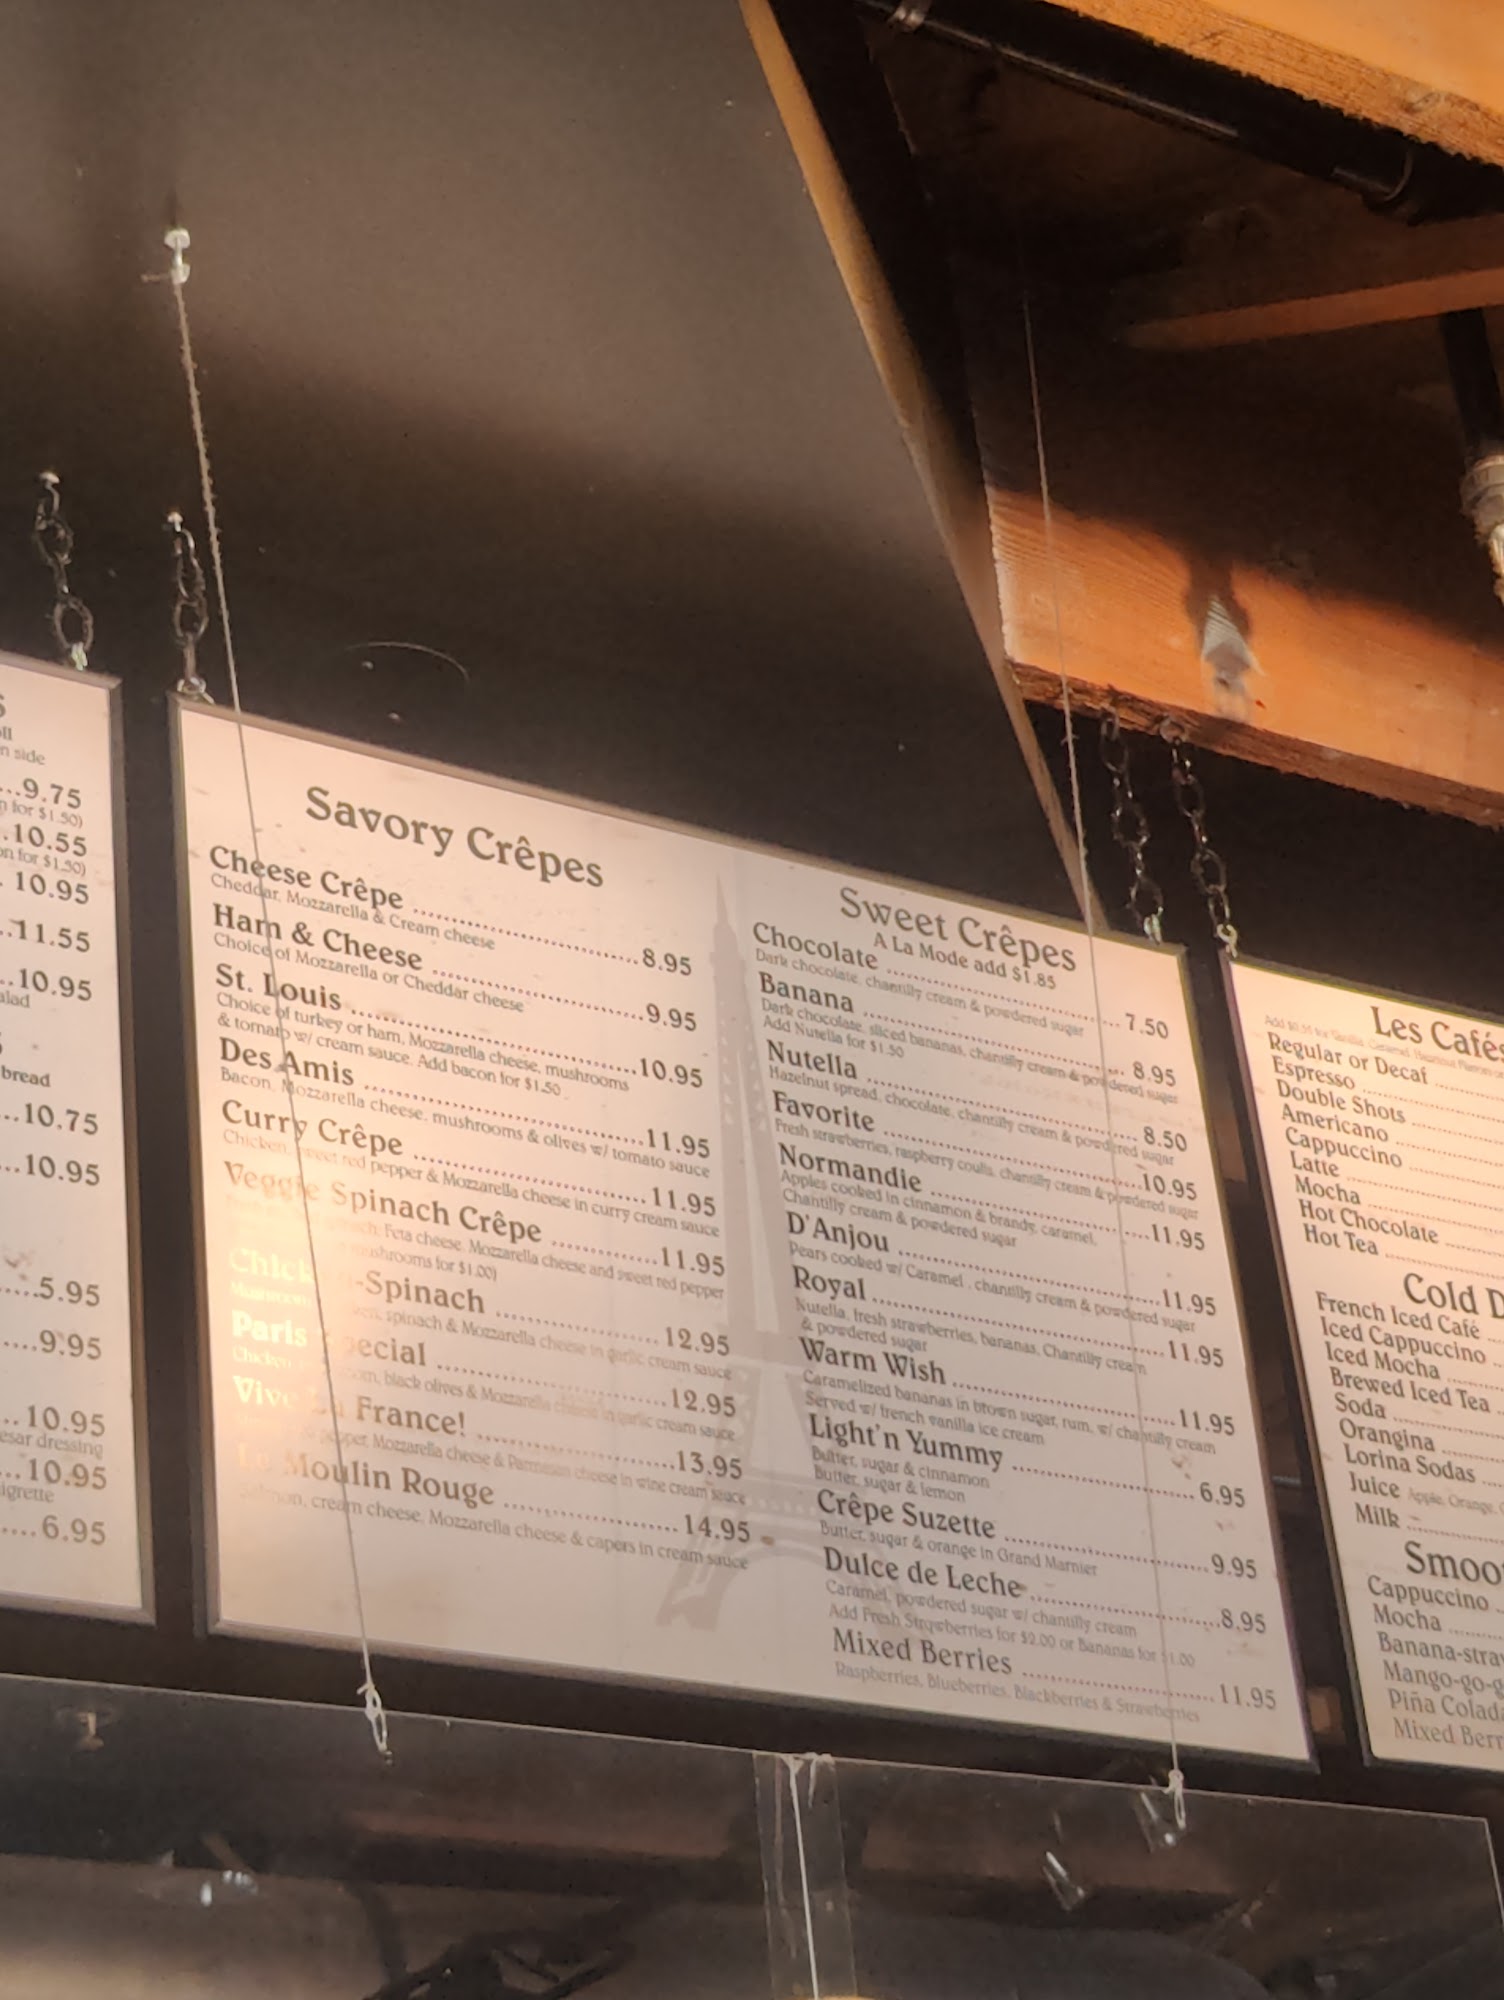 S
n side
...9.75
n for $1.50)
.10.55
on for $1.50)
. 10.95
..11.55
..10.95
alad
bread
...10.75
...10.95
....5.95
....9.95
.. 10.95
esar dressing
... 10.95
igrette
.... 6.95
Savory Crêpes
Cheese Crêpe ........................ 8.95
Cheddar, Mozzarella & Cream cheese
Ham & Cheese ........................ 9.95
Choice of Mozzarella or Cheddar cheese
St. Louis ........................ 10.95
Choice of turkey or ham, Mozzarella cheese, mushrooms
& tomato w/ cream sauce. Add bacon for $1.50
Des Amis ........................ 11.95
Bacon, Mozzarella cheese, mushrooms & olives w/ tomato sauce
Curry Crêpe ........................ 11.95
Chicken, sweet red pepper & Mozzarella cheese in curry cream sauce
Veggie Spinach Crêpe ............ 11.95
Feta cheese, Mozzarella cheese and sweet red pepper
mushrooms for $1.00)
Chicken-Spinach .................. 12.95
spinach & Mozzarella cheese in garlic cream sauce
Paris Special ........................ 12.95
Chicken black olives & Mozzarella cheese in garlic cream sauce
Vive La France! .................. 13.95
pepper, Mozzarella cheese & Parmesan cheese in wine cream sauce
Le Moulin Rouge .................. 14.95
cream cheese, Mozzarella cheese & capers in cream sauce
Sweet Crêpes
A La Mode add $1.85
Chocolate ........................ 7.50
Dark chocolate, chantilly cream & powdered sugar
Banana ........................ 8.95
Dark chocolate, sliced bananas, chantilly cream & powdered sugar
Add Nutella for $1.50
Nutella ........................ 8.50
Hazelnut spread, chocolate, chantilly cream & powdered sugar
Favorite ........................ 10.95
Fresh strawberries, raspberry coulis, chantilly cream & powdered sugar
Normandie ........................ 11.95
Apples cooked in cinnamon & brandy, caramel,
Chantilly cream & powdered sugar
D'Anjou ........................ 11.95
Pears cooked w/ Caramel , chantilly cream & powdered sugar
Royal ........................ 11.95
Nutella, fresh strawberries, bananas, Chantilly cream
& powdered sugar
Warm Wish ........................ 11.95
Caramelized bananas in brown sugar, rum, w/ chantilly cream
Served w/ french vanilla ice cream
Light'n Yummy .................. 6.95
Butter, sugar & cinnamon
Butter, sugar & lemon
Crêpe Suzette .................. 9.95
Butter, sugar & orange in Grand Marnier
Dulce de Leche .................. 8.95
Caramel, powdered sugar w/ chantilly cream
Add Fresh Strawberries for $2.00 or Bananas for $1.00
Mixed Berries .................. 11.95
Raspberries, Blueberries, Blackberries & Strawberries
Les Cafés
Regular or Decaf
Espresso
Double Shots
Americano
Cappuccino
Latte
Mocha
Hot Chocolate
Hot Tea
Cold D
French Iced Café
Iced Cappuccino
Iced Mocha
Brewed Iced Tea
Soda
Orangina
Lorina Sodas
Juice Apple, Orange,
Milk
Smoo
Cappuccino
Mocha
Banana-straw
Mango-go-g
Piña Colada
Mixed Berr